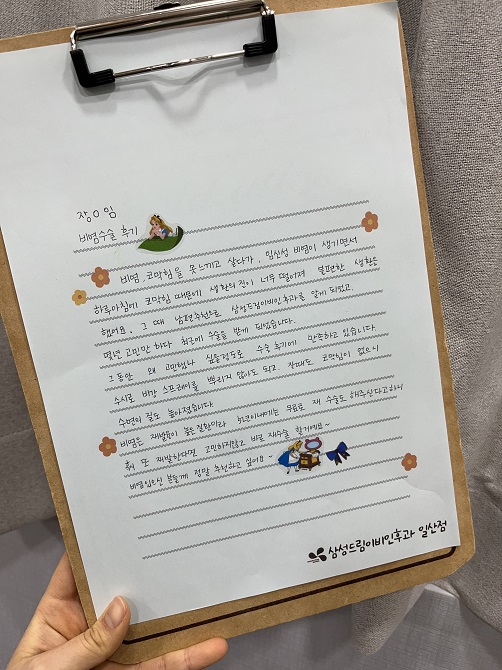 장O임
비염수술 후기
비염, 코막힘을 못느끼고 살다가, 임신성 비염이 생기면서
하루아침에 코막힘 때문에 생활의 질이 너무 떨어져 불편한 생활을
했어요. 그 때 남편추천으로 삼성드림이비인후과를 알게 되었고,
몇년 고민만 하다 최근에 수술을 받게 되었습니다.
그동안 왜 고민했나 싶을정도로 수술 후기에 만족하고 있습니다.
수시로 비강 스프레이를 뿌리지 않아도 되고 잘때도 코막힘이 없으니
수면의 질도 높아졌습니다.
비염은 재발률이 높은질환이라 5년이내에는 무료로 재 수술도 해주신다고하니
혹 또 재발한다면 고민하지않고 바로 재수술 할거에요~
비염있으신 분들께 정말 추천하고 싶어요~
삼성드림이비인후과 일산점